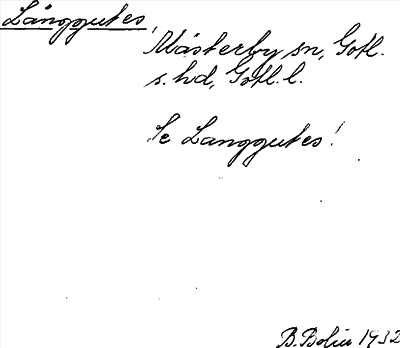 Långgutes,
Mästerby sn, Gotl.
s. hd, Gotl. l.
Se Langgutes!
B. Bolin 1932